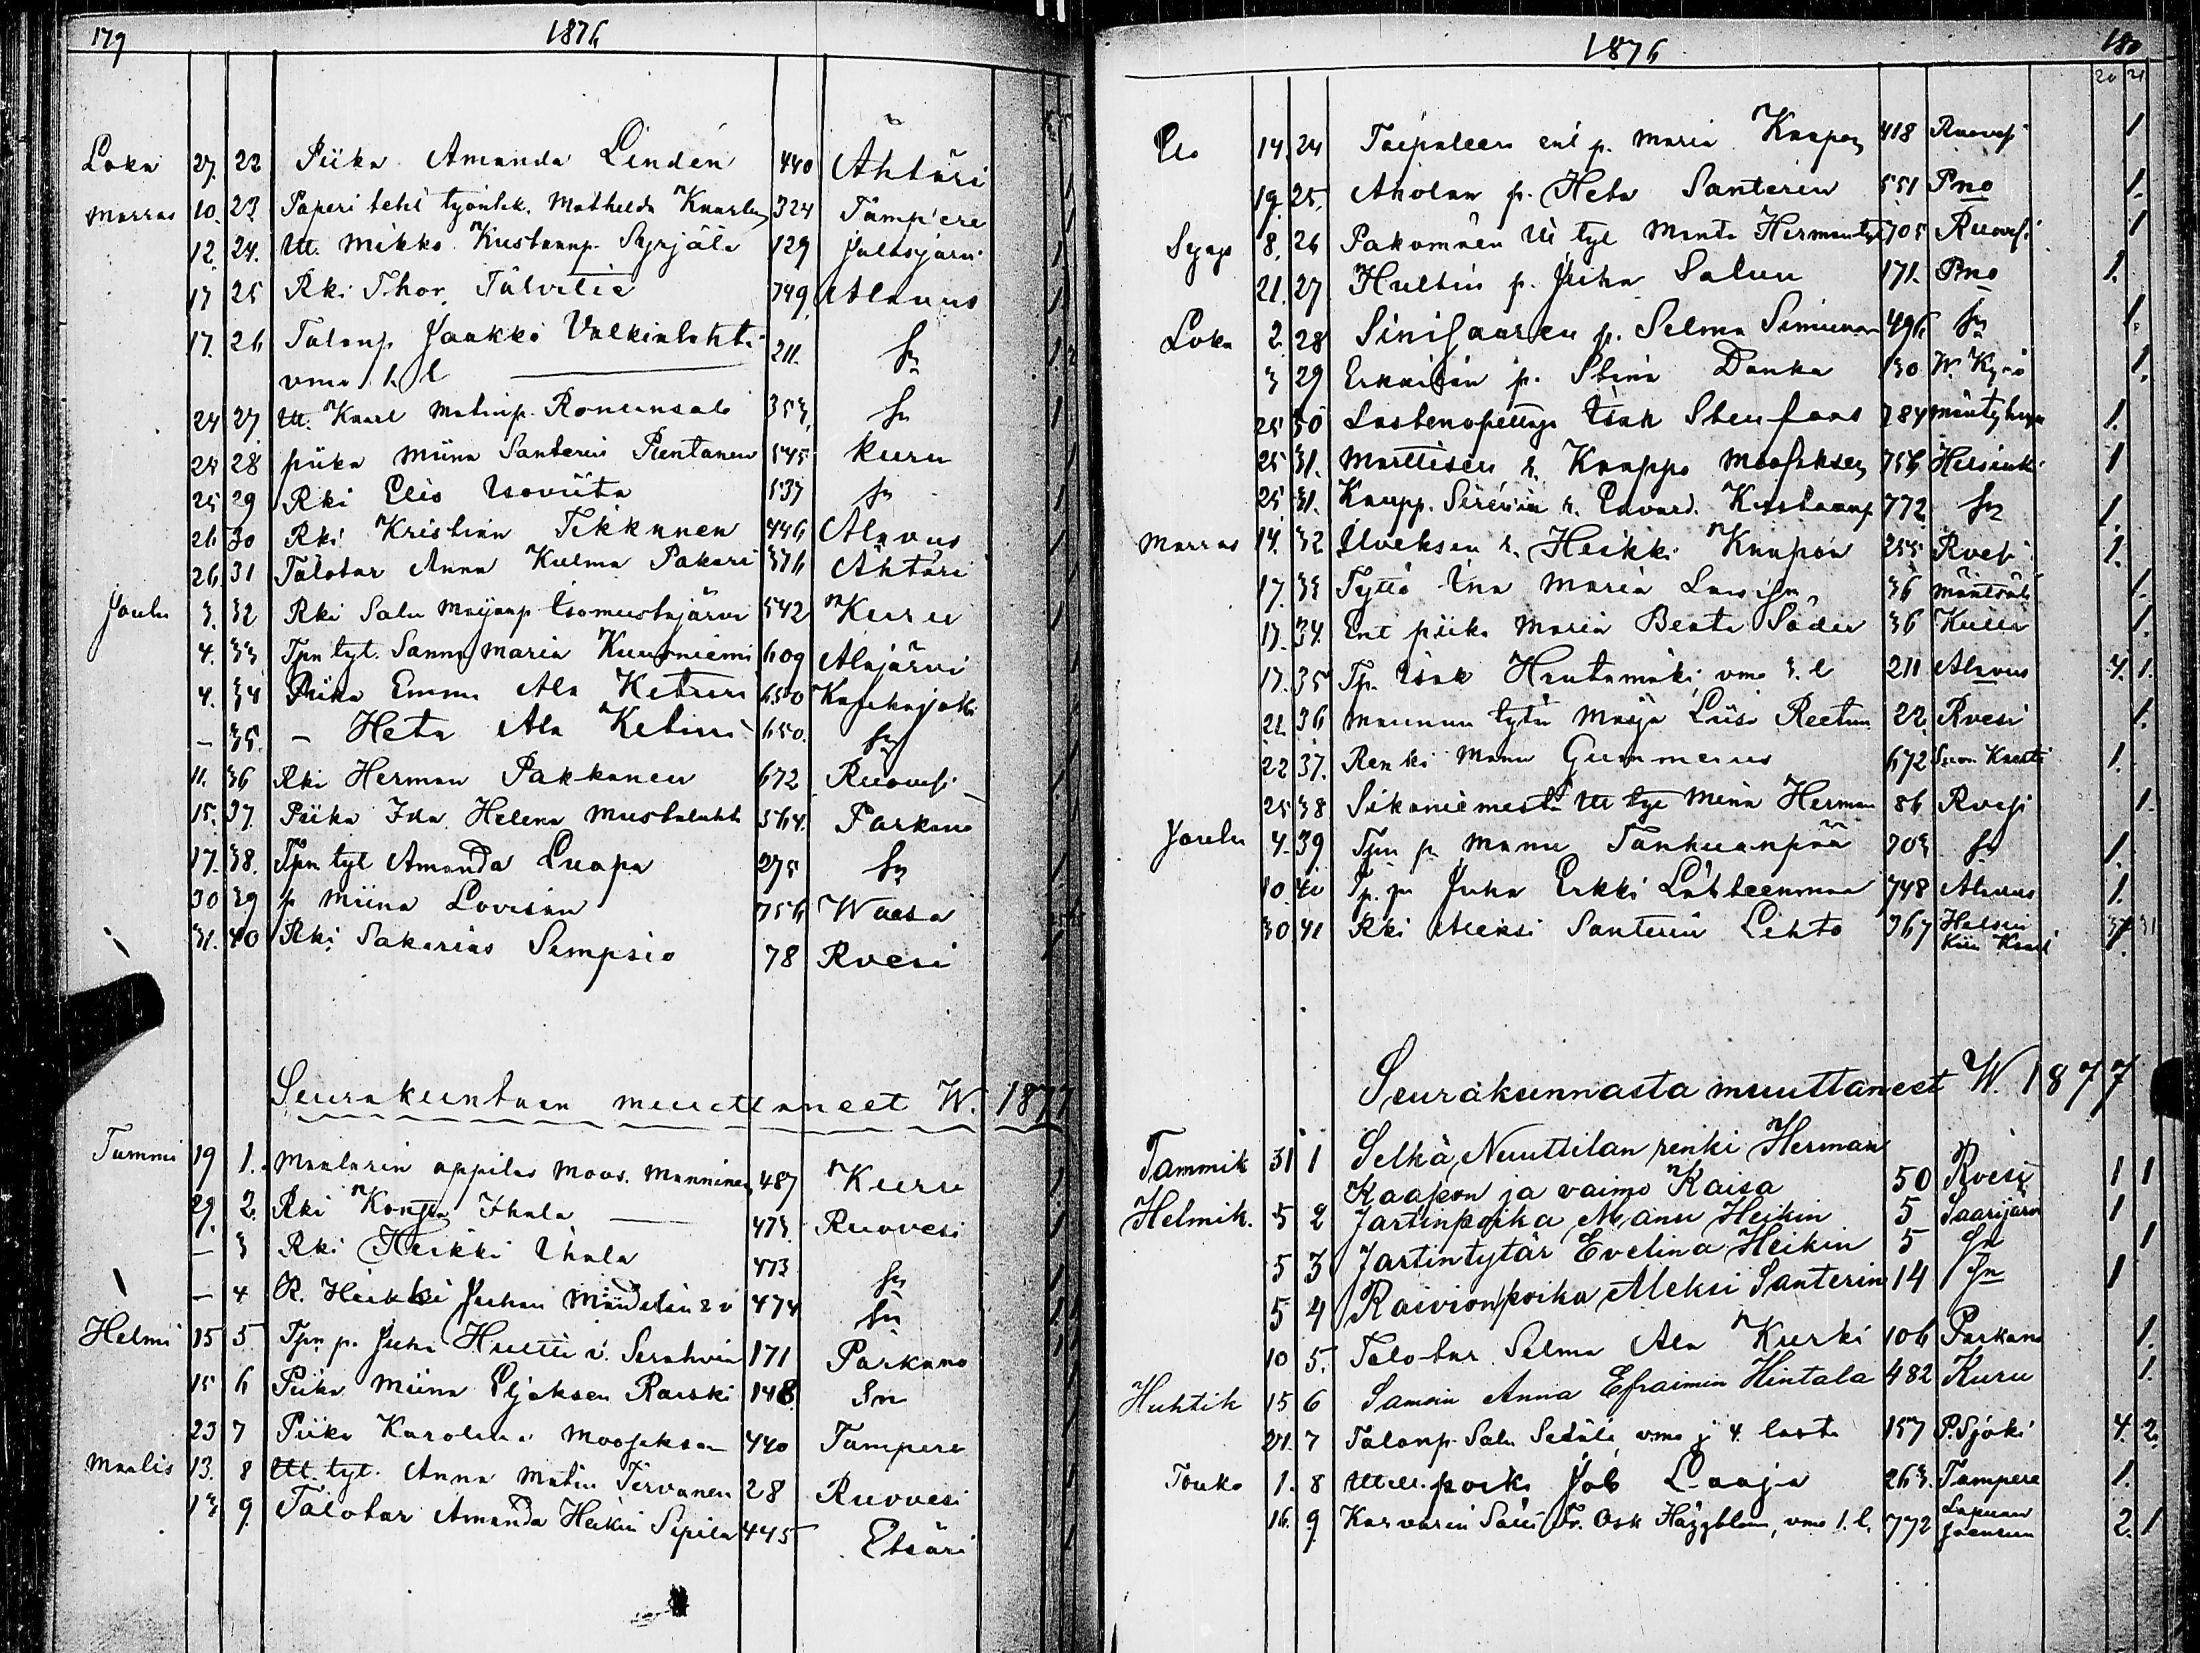 179 1876
Loka 27. 22 Piika Amanda Lindén 440 Ähtäri
Marras 10. 23 Paperi teht työntek. Mathilda Kaarlen 324 Tampere 1
12. 24. Itl. Mikko Kustaanp. Syrjälä 129 Jalasjärvi 1
17 25 Rki Thor. Talvitie 749 Alavus 1
17. 26 Talonp. Jaakko Valkialahti 211. sn 1. 2
vmo 1. l
24 27 Itl. Kaarl Matinp. Ronunsalo 353 sn 1
24 28 piika Miina Santerin Rentanen 545 Kuru 1
25 29 Rki Elis Isoviita 537 sn 1
26 30 Rki Kristian Tikkanen 446 Alavus 1
26. 31 Talotar Anna Kulma Pakari 376 Ähtäri 1
Joulu 3. 32 Rki Salu Maijanp Isomustajärvi 542 Kuru 1
4. 33 Tpn tyt. Sanna Maria Kuusniemi 609 Alajärvi 1
4. 34 Piika Emma Ala Keturi 650 Kauhajoki
– 35. – Heta Ala Keturi 650. sn
11. 36 Rki Herman Pakkanen 672 Ruovesi 1
15. 37. Piika Ida Helena Mustalahti 364. Parkano
17. 38. Tpn tyt Amanda Luopa 275 sn
30 39 p Miina Lovisan 756 Waasa
31. 40 Rki Sakarias Sempsio 78 Rvesi 1
Seurakuntaan muuttaneet W. 1877
Tammi 19 1. Maalarin oppilas Moos. Manninen 487 Kuru 1
29. 2. Rki Konsta Ihala 473. Ruovesi 1
– 3 Rki Heikki Ihala 473 sn 1
– 4 R. Heikki Juhan 474 sn 1 1
Helmi 15 5 Tpn p. Juha Hultti 171 Parkano 1
15 6 Piika Miina Eljaksen Raiski 148 Sn 1
23 7 Piika Karolina Mooseksen 440 Tampere 1
Maalis 13. 8 Itl. tyt. Anna Matin Tervanen 28 Ruovesi 1
13 9. Talotar Amanda Heikin Sepila 445 Etsäri 1
1876 180
20 21
Elo 14. 24 Taipaleen entp. Maria Kaapon 418 Ruovesi 1
19. 25. Aholan p. Heta Santerin 551 Pno 1.
Syys 8. 26 Pakomäen Itl tyt Manta Hermantyt 705 Ruovesi 1
21. 27 Hultin p. Juha Salun 171. Pno 1.
Loka 2. 28 Sinisaaren p. Selma Simunan 496 sn 1.
3 29 Erkkilän p. Stina Danka 130 W. Kyrö 1.
25 30 Lastenopettaja Isak Stenfors 784 Mäntyharju 1.
25 31. Marttisen r. Kaappo Mooseksen 756 Helsinki 1
25 31. Kaupp. Sirénin r. Edvard. Kustaanp 772 sn 1.
Marras 14. 32 Ilveksen r. Heikki Kaapon 255 Rvesi 1.
17. 33 Tyttö Ina Maria Lovisan 36 Mäntsälä 1.
17. 34. Ent piika Maria Beata Söder 36 Kuru 1.
17. 35 Tp. Isak Hautamäki vmo 3. l 211 Alavus 4. 1.
22. 36 Maunun tytär Maija Liisa Reetan 22. Rvesi 1.
22 37. Renki Manu Gummerus 672 Suon Kaarle 1.
25 38 Sikaniemestä Itl tyt Miina Herman 86 Rvesi 1.
Joulu 4. 39 Tpn p. Manu Tankuanpää 703 sn 1.
10 40 Tp. p. Juha Erkki Lähteenmaa 748 Alavus 1.
30 41 Rki Aleksi Santerin Lehto 367 Helsin 37 31
Kiin Kaarl 1.
Seurakunnasta muuttaneet W. 1877
Tammik 31 1 Selkä, Nuuttilan renki Herman
Kaapon ja vaimo Kaisa 50 Rvesi 1 1
Helmik. 5 2 Jartinpoika Manu Heikin 5 Saarijärvi 1
5 3 Jartintytär Evelina Heikin 5 Sn 1
5 4 Raivionpoika Aleksi Santerin 14 Sn 1
10 5. Talotar Selma Ala Kurki 106 Parkano 1.
Huhtik 15 6 Samoin Anna Efraimin Hintala 482 Kuru 1.
24. 7 Talonp. Salu Setälä vmo j 4. lasta 157 P.Sjoki 4. 2.
Touko 1. 8 Itll. poika Job Laaja 263. Tampere 1.
16. 9. Karvarin Sälli Fr. Osk Häggblom, vmo 1. l. 772 Lapuan 2. 1